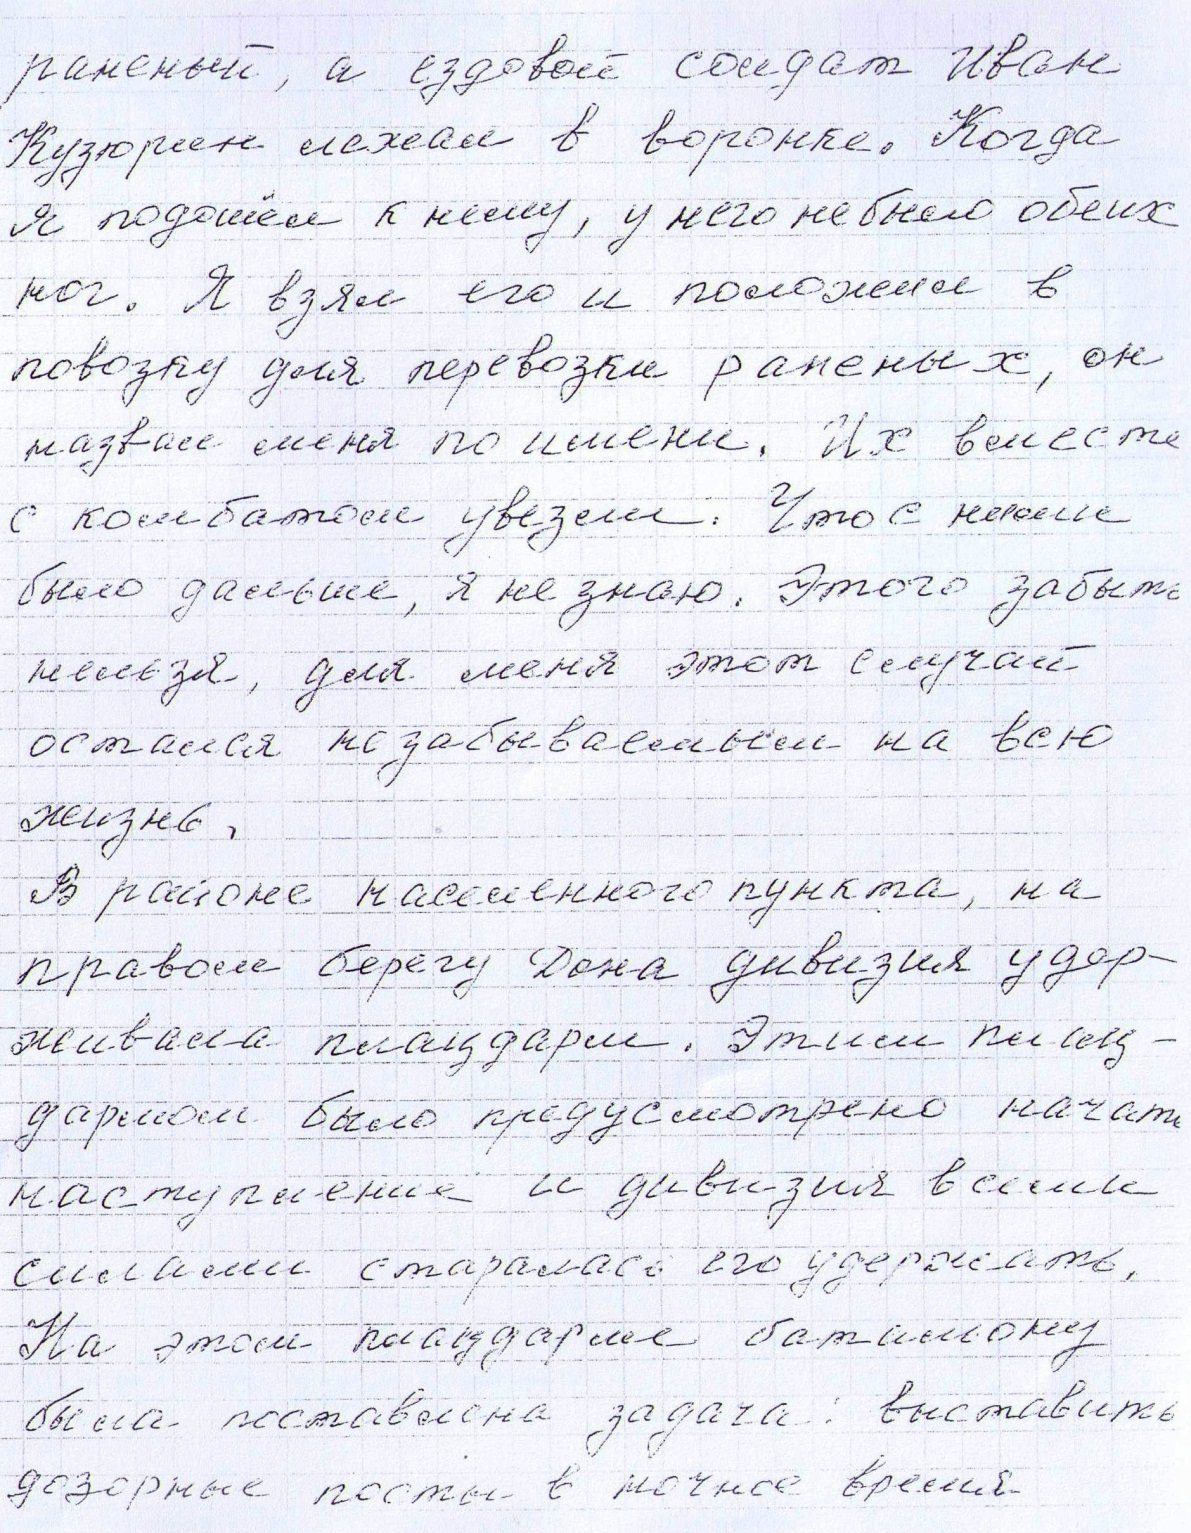 раненый, а ездовой солдат Иван
Кузюрин лежал в воронке. Когда
я подошёл к нему, у него не было обеих
ног. Я взял его и положил в
повозку для перевозки раненых, он
назвал меня по имени. Их вместе
с комбатом увезли. Что с ними
было дальше, я не знаю. Этого забыть
нельзя, для меня этот случай
остался незабываемым на всю
жизнь.
В районе населенного пункта, на
правом берегу Дона дивизия удер-
живала плацдарм. Этим плац-
дармом было предусмотрено начать
наступление и дивизия всеми
силами старалась его удержать.
На этом плацдарме батальону
была поставлена задача: выставить
дозорные посты в ночное время